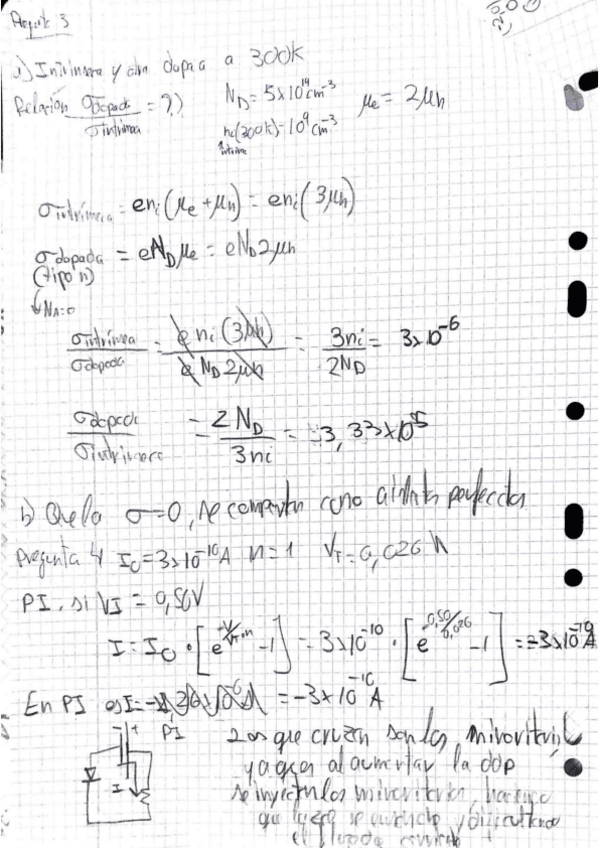 Pregunta 3
a) Intrínseca y otra dopada a 300K
Relación σdopada/σintrínseca = ?)
N_D = 5x10^14 cm^-3
n_i(300K) = 10^9 cm^-3
μe = 2μh
σintrínseca = en_i(μe + μh) = en_i(3μh)
σdopada = eN_Dμe = eN_D2μh
(tipo n)
↓ N_A=0
σintrínseca/σdopada = e n_i (3μh) / e N_D 2μh = 3n_i/2N_D = 3x10^-6
σdopada/σintrínseca = 2N_D/3n_i = 3,33x10^5
b) Que la σ=0, se comportan como aislantes perfectos
Pregunta 4 I_0 = 3x10^-10 A n=1 V_T = 0,026 V
PI, si VI = 0,50V
I = I_0 · [e^(-V/V_T·n) -1] = 3x10^-10 · [e^(-0,50/0,026) -1] = -3x10^-10 A
En PI I = = -3x10^-10 A
- + PI
I
Los que cruzan son los minoritarios
ya que al aumentar la ddp
se inyectan los minoritarios,
que luego se y
el